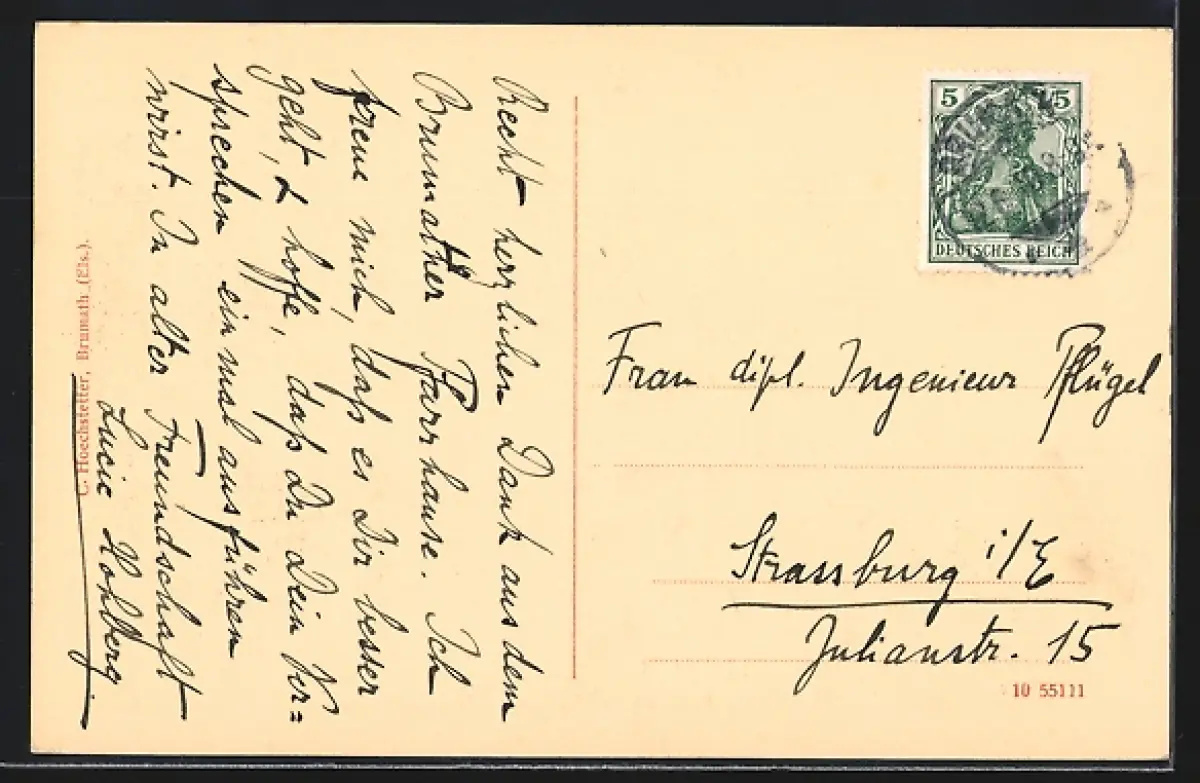 Recht herzlichen Dank aus dem
Brumather Pfarrhause. Ich
freue mich, daß es Dir besser
geht, & hoffe, daß Du Dein Ver=
sprechen einmal ausführen
wirst. In alter Freundschaft
Lucie Hohlberg.
C. Hoechstetter, Brumath (Els.).
5 5
DEUTSCHES REICH
Frau dipl. Ingenieur Pflügel
Strassburg i/E
Julianstr. 15
10 55111